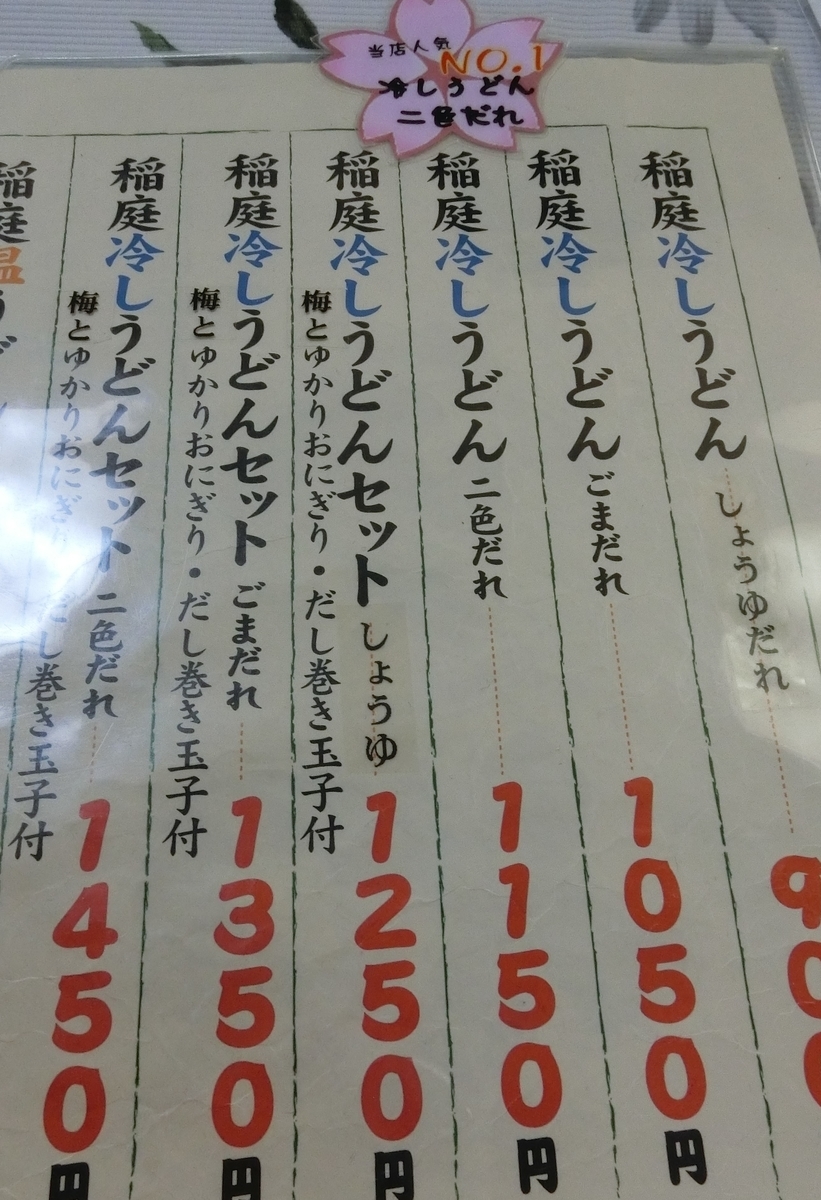 当店人気
NO.1
冷しうどん
二色だれ
稲庭冷しうどん しょうゆだれ
稲庭冷しうどん ごまだれ 1050円
稲庭冷しうどん 二色だれ 1150円
稲庭冷しうどんセット しょうゆ 1250円
梅とゆかりおにぎり・だし巻き玉子付
稲庭冷しうどんセット ごまだれ 1350円
梅とゆかりおにぎり・だし巻き玉子付
稲庭冷しうどんセット 二色だれ 1450円
梅とゆかりおにぎり・だし巻き玉子付
稲庭温うど